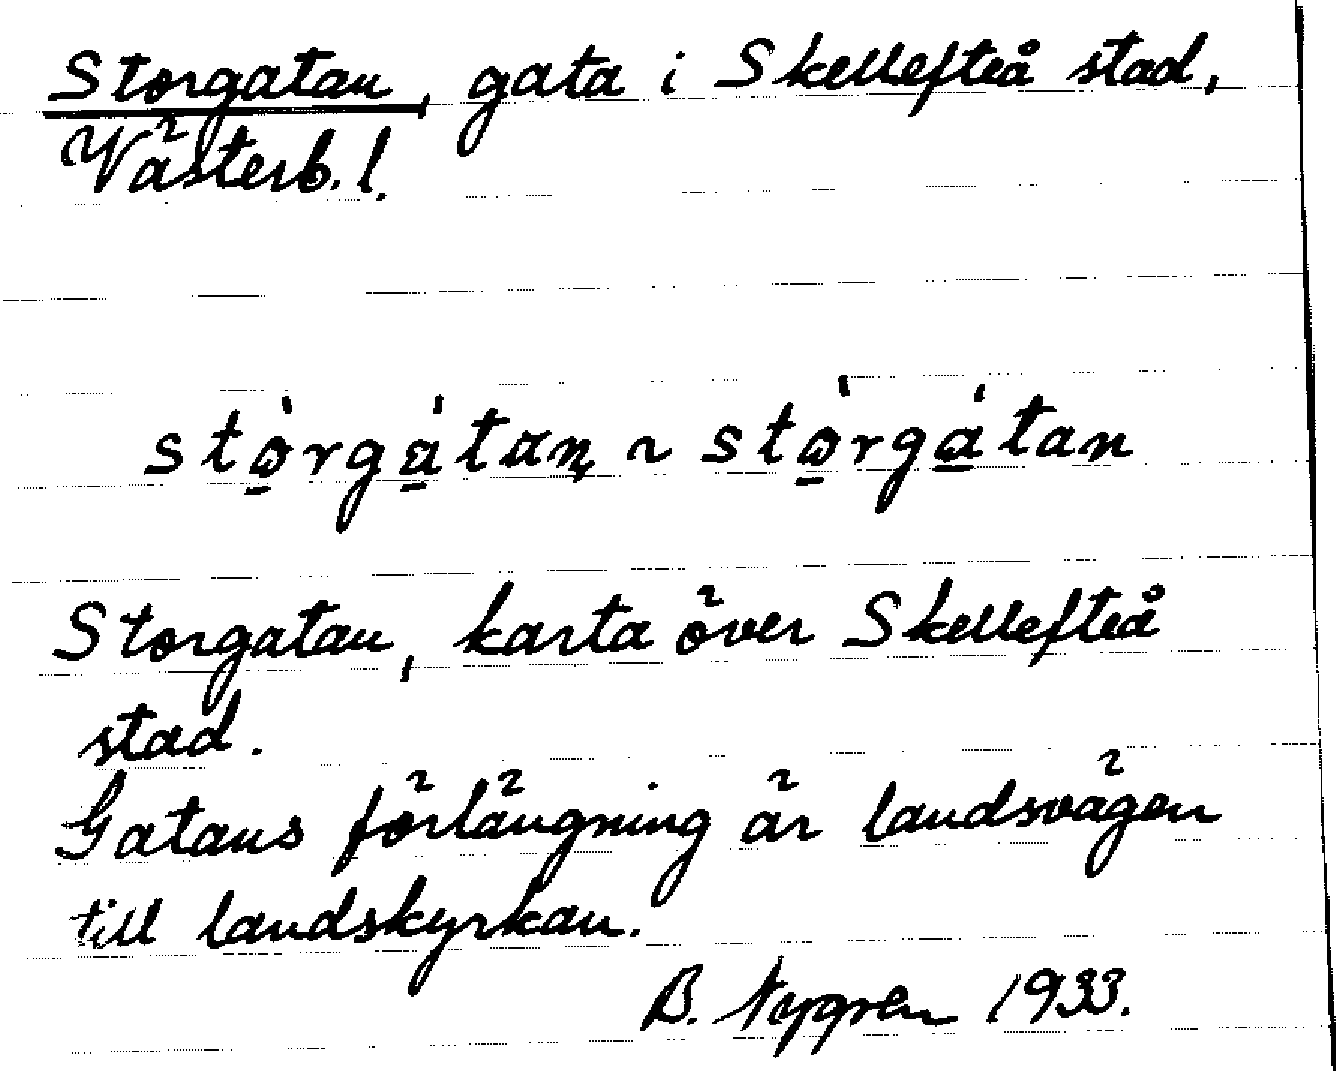 Storgatan, gata i Skellefteå stad,
Västerb. l.
stὼ̲rgά̲tαn̢ ~ stὼ̲rgά̲tan
Storgatan, karta över Skellefteå
stad.
Gatans förlängning är landsvägen
till landskyrkan.
B. Nygren 1933.